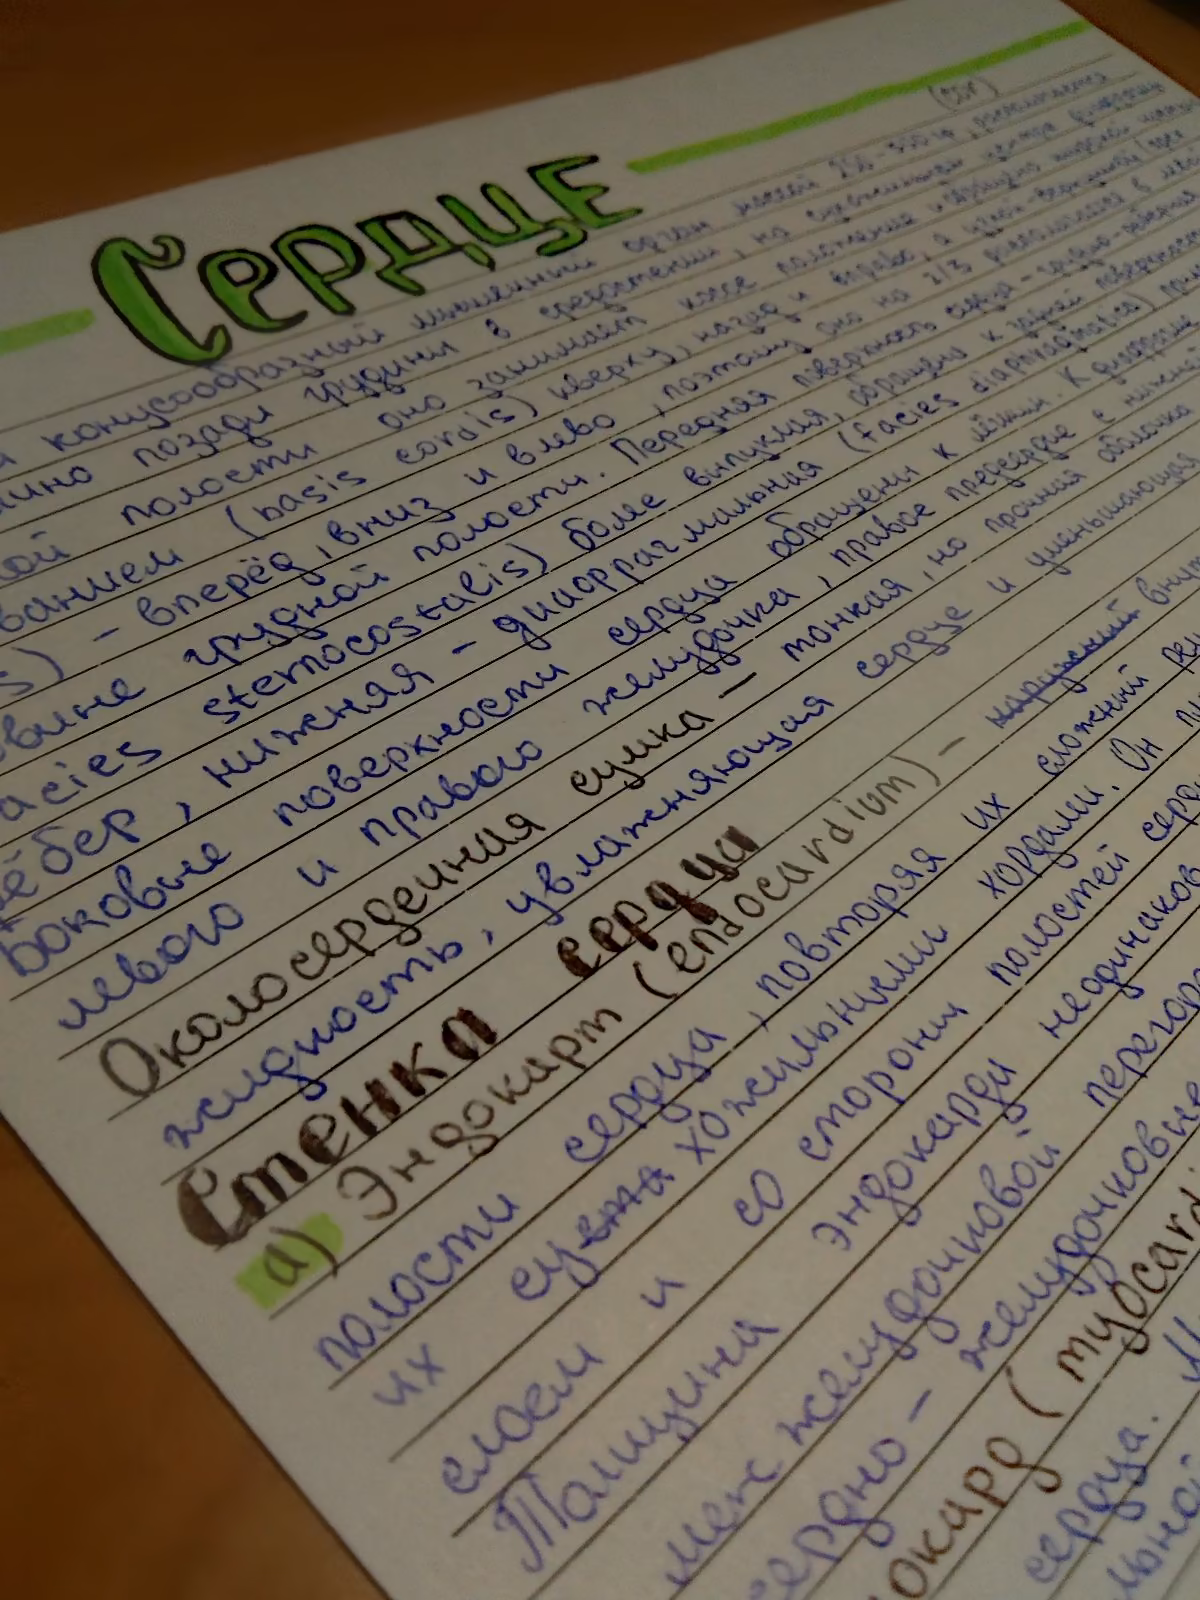 Сердце
конусообразный мышечный орган массой 250-350 гр, располагается
позади грудины в средостении, на сухожильном центре диафрагмы
полости оно занимает косое положение и обращено широкой частью
ванием (basis cordis) кверху, назад и вправо, а узкой-верхушкой
s) - вперёд, вниз и влево, поэтому оно на 2/3 располагается в левой
грудной полости. Передняя поверхность сердца - грудино-рёберная
acies sternocostalis) более выпуклая, обращена к задней поверхности
рёбер, нижняя - диафрагмальная (facies diaphragmatica)
Боковые поверхности сердца обращены к лёгким. К диафрагме
левого и правого желудочка, правое предсердие с нижней
Околосердечная сумка - тонкая, но прочная оболочка
жидкость, увлажняющая сердце и уменьшающая
Стенка сердца
а) Эндокарт (endocardium) - наружный внут
полости сердца, повторяя их сложный рел
их сухожильными хордами. Он
слоем и со стороны полостей серд
Толщина эндокарда неодинаков
меж желудочковой перегор
сердно - желудочковые
окард (myocard
сердца.